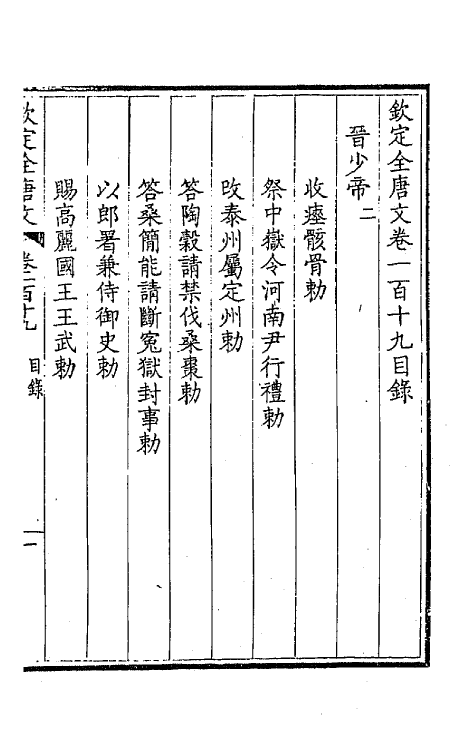 欽定全唐文卷一百十九目錄
晉少帝二
收瘞骸骨勅
祭中嶽令河南尹行禮勅
改泰州屬定州勅
答陶穀請禁伐桑棗勅
答桑簡能請斷冤獄封事勅
以郎署兼侍御史勅
賜高麗國王王武勅
欽定全唐文 卷一百十九 目錄 一